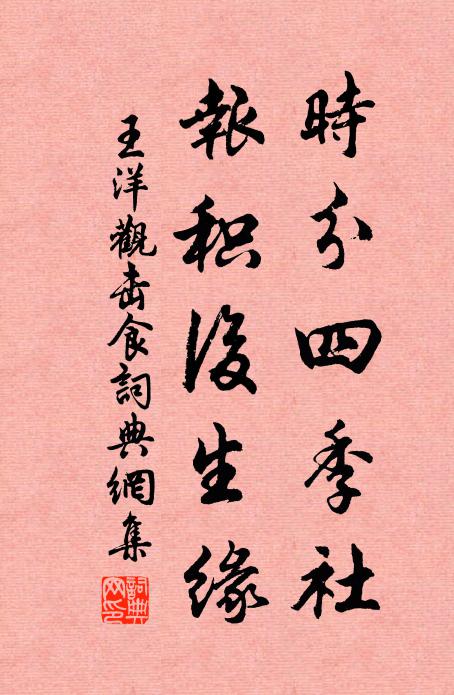 時分四季社
報积後生緣
王洋觀击食詞典網集
詞典网印